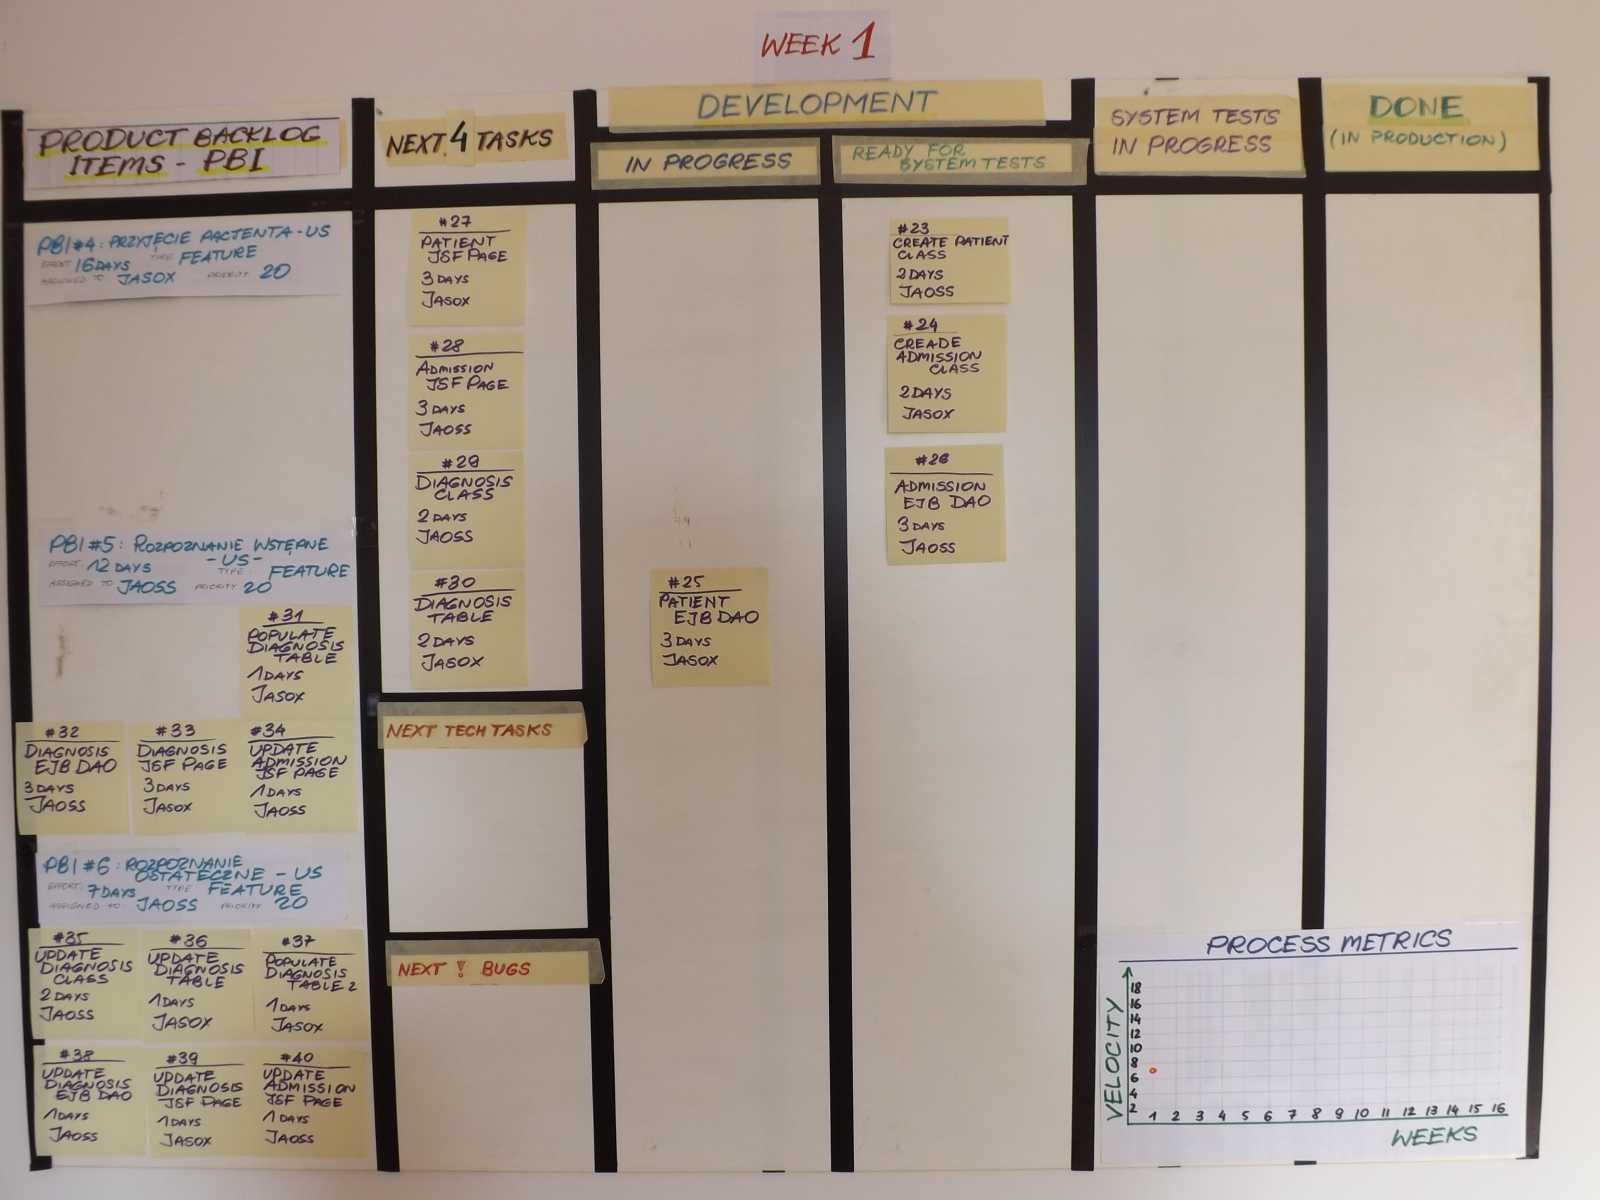 WEEK 1
PRODUCT BACKLOG
ITEMS - PBI
NEXT 4 TASKS
DEVELOPMENT
IN PROGRESS
READY FOR
SYSTEM TESTS
SYSTEM TESTS
IN PROGRESS
DONE
(IN PRODUCTION)
PBI #4: PRZYJĘCIE PACJENTA - US
EFFORT: 16 DAYS TYPE FEATURE
ASSIGNED TO JASOX PRIORITY 20
PBI #5: ROZPOZNANIE WSTĘPNE
- US -
EFFORT: 12 DAYS TYPE FEATURE
ASSIGNED TO JAOSS PRIORITY 20
#31
POPULATE
DIAGNOSIS
TABLE
1 DAYS
JASOX
#32
DIAGNOSIS
EJB DAO
3 DAYS
JAOSS
#33
DIAGNOSIS
JSF PAGE
3 DAYS
JASOX
#34
UPDATE
ADMISSION
JSF PAGE
1 DAYS
JAOSS
PBI #6: ROZPOZNANIE
OSTATECZNE - US
EFFORT: 7 DAYS TYPE FEATURE
ASSIGNED TO JAOSS PRIORITY 20
#35
UPDATE
DIAGNOSIS
CLASS
2 DAYS
JAOSS
#36
UPDATE
DIAGNOSIS
TABLE
1 DAYS
JASOX
#37
POPULATE
DIAGNOSIS
TABLE 2
1 DAYS
JASOX
#38
UPDATE
DIAGNOSIS
EJB DAO
1 DAYS
JAOSS
#39
UPDATE
DIAGNOSIS
JSF PAGE
1 DAYS
JASOX
#40
UPDATE
ADMISSION
JSF PAGE
1 DAYS
JAOSS
#27
PATIENT
JSF PAGE
3 DAYS
JASOX
#28
ADMISSION
JSF PAGE
3 DAYS
JAOSS
#29
DIAGNOSIS
CLASS
2 DAYS
JAOSS
#30
DIAGNOSIS
TABLE
2 DAYS
JASOX
NEXT TECH TASKS
NEXT ! BUGS
#25
PATIENT
EJB DAO
3 DAYS
JASOX
#23
CREATE PATIENT
CLASS
2 DAYS
JAOSS
#24
CREADE
ADMISSION
CLASS
2 DAYS
JASOX
#26
ADMISSION
EJB DAO
3 DAYS
JAOSS
PROCESS METRICS
VELOCITY
18
16
14
12
10
8
6
4
2
1 2 3 4 5 6 7 8 9 10 11 12 13 14 15 16
WEEKS